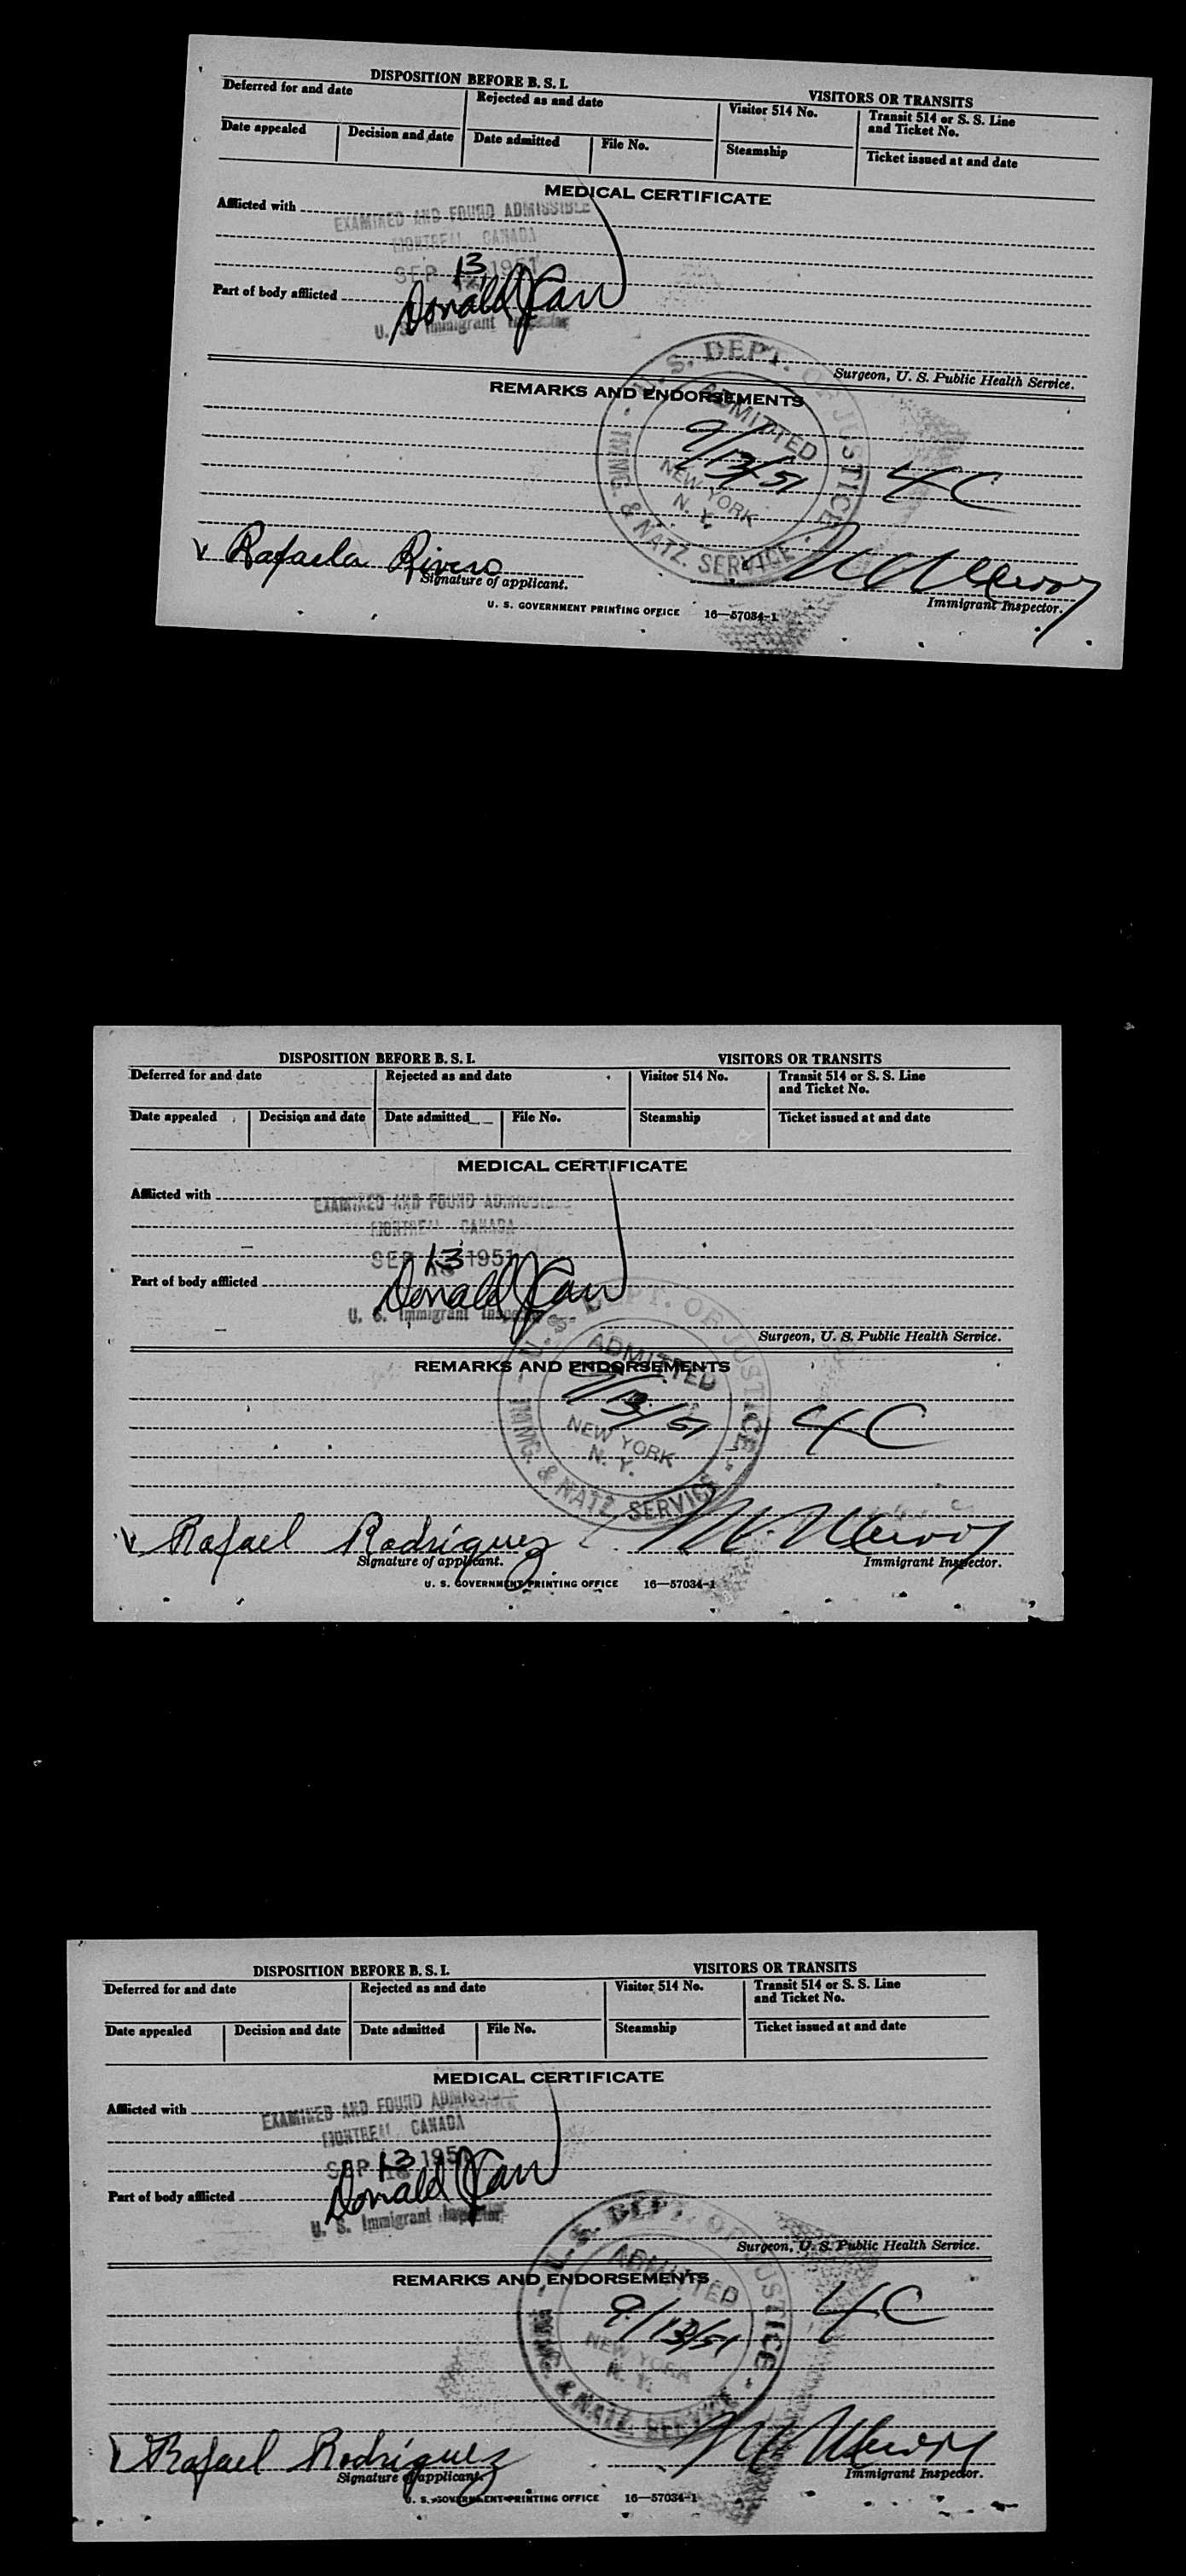 DISPOSITION BEFORE B. S. I.
VISITORS OR TRANSITS
Deferred for and date
Rejected as and date
Visitor 514 No.
Transit 514 or S. S. Line
and Ticket No.
Date appealed
Decision and date
Date admitted
File No.
Steamship
Ticket issued at and date
MEDICAL CERTIFICATE
Afflicted with
EXAMINED AND FOUND ADMISSIBLE
MONTREAL, CANADA
SEP 13 1951
Part of body afflicted
Donald J Carr
U. S. Immigrant Inspector
Surgeon, U. S. Public Health Service.
REMARKS AND ENDORSEMENTS
U. S. DEPT. OF JUSTICE
ADMITTED
9/13/51
NEW YORK
N. Y.
IMMG. & NATZ. SERVICE
4C
Rafaela Rivero
Signature of applicant.
Immigrant Inspector.
U. S. GOVERNMENT PRINTING OFFICE 16—57034-1
DISPOSITION BEFORE B. S. I.
VISITORS OR TRANSITS
Deferred for and date
Rejected as and date
Visitor 514 No.
Transit 514 or S. S. Line
and Ticket No.
Date appealed
Decision and date
Date admitted
File No.
Steamship
Ticket issued at and date
MEDICAL CERTIFICATE
Afflicted with
EXAMINED AND FOUND ADMISSIBLE
MONTREAL, CANADA
SEP 13 1951
Part of body afflicted
Donald J Carr
U. S. Immigrant Inspector
Surgeon, U. S. Public Health Service.
REMARKS AND ENDORSEMENTS
U. S. DEPT. OF JUSTICE
ADMITTED
9/13/51
NEW YORK
N. Y.
IMMG. & NATZ. SERVICE
4C
Rafael Rodríguez
Signature of applicant.
Immigrant Inspector.
U. S. GOVERNMENT PRINTING OFFICE 16—57034-1
DISPOSITION BEFORE B. S. I.
VISITORS OR TRANSITS
Deferred for and date
Rejected as and date
Visitor 514 No.
Transit 514 or S. S. Line
and Ticket No.
Date appealed
Decision and date
Date admitted
File No.
Steamship
Ticket issued at and date
MEDICAL CERTIFICATE
Afflicted with
EXAMINED AND FOUND ADMISSIBLE
MONTREAL, CANADA
SEP 13 1951
Part of body afflicted
Donald J Carr
U. S. Immigrant Inspector
Surgeon, U. S. Public Health Service.
REMARKS AND ENDORSEMENTS
U. S. DEPT. OF JUSTICE
ADMITTED
9/13/51
NEW YORK
N. Y.
IMMG. & NATZ. SERVICE
4C
Rafael Rodríguez
Signature of applicant.
Immigrant Inspector.
U. S. GOVERNMENT PRINTING OFFICE 16—57034-1